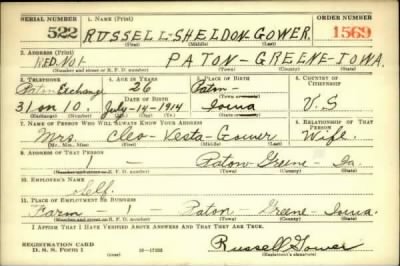 SERIAL NUMBER 1. NAME (Print) ORDER NUMBER
522 RUSSELL-SHELDON-GOWER 1569
(First) (Middle) (Last)
2. ADDRESS (Print)
RED. NO1- PATON-GREENE-IOWA.
(Number and street or R. F. D. number) (Town) (County) (State)
3. TELEPHONE 4. AGE IN YEARS 5. PLACE OF BIRTH 6. COUNTRY OF CITIZENSHIP
Paton Exchange 26 Paton-
DATE OF BIRTH (Town or county)
31 on 10. July-14-1914 Iowa U.S
(Exchange) (Number) (Mo.) (Day) (Yr.) (State or country)
7. NAME OF PERSON WHO WILL ALWAYS KNOW YOUR ADDRESS 8. RELATIONSHIP OF THAT PERSON
Mrs. Cleo-Vesta-Gower Wife.
(Mr., Mrs., Miss) (First) (Middle) (Last)
9. ADDRESS OF THAT PERSON
1- Paton-Greene-Ia.
(Number and street or R. F. D. number) (Town) (County) (State)
10. EMPLOYER'S NAME
Self.
11. PLACE OF EMPLOYMENT OR BUSINESS
Farm-1- Paton-Greene-Iowa.
(Number and street or R. F. D. number) (Town) (County) (State)
I AFFIRM THAT I HAVE VERIFIED ABOVE ANSWERS AND THAT THEY ARE TRUE.
REGISTRATION CARD Russell Gower
D. S. S. Form 1 16-17105 (Registrant's signature)